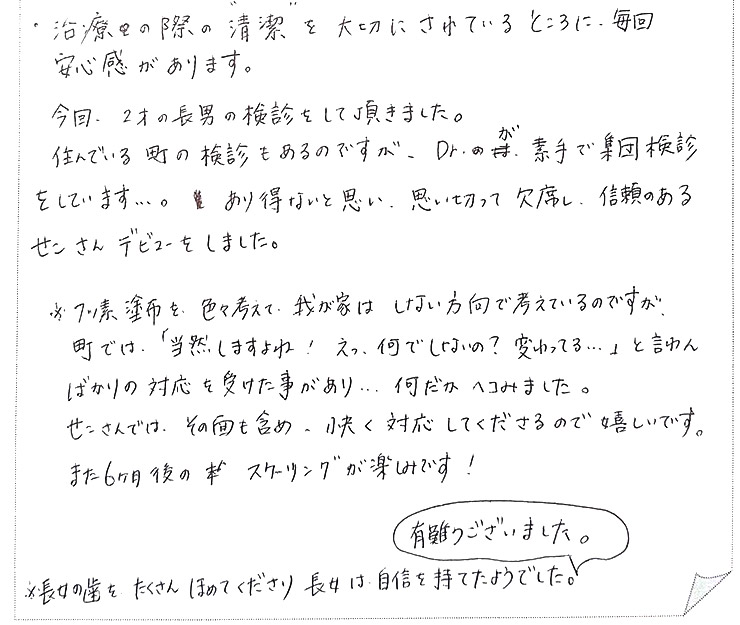 ・治療の際の"清潔"を大切にされているところに、毎回
安心感があります。
今回、2才の長男の検診をして頂きました。
住んでいる町の検診もあるのですが、Dr.が素手で集団検診
をしています…。あり得ないと思い、思い切って欠席し、信頼のある
せンさんデビューをしました。
※フッ素塗布を、色々考えて、我が家はしない方向で考えているのですが、
町では、「当然しますよね！えっ、何でしないの？変わってる…」と言わん
ばかりの対応を受けた事があり…何だかヘコみました。
せンさんでは、その面も含め、快く対応してくださるので嬉しいです。
また6ヶ月後のスケーリングが楽しみです！
有難うございました。
※長女の歯をたくさんほめてくださり長女は自信を持てたようでした。